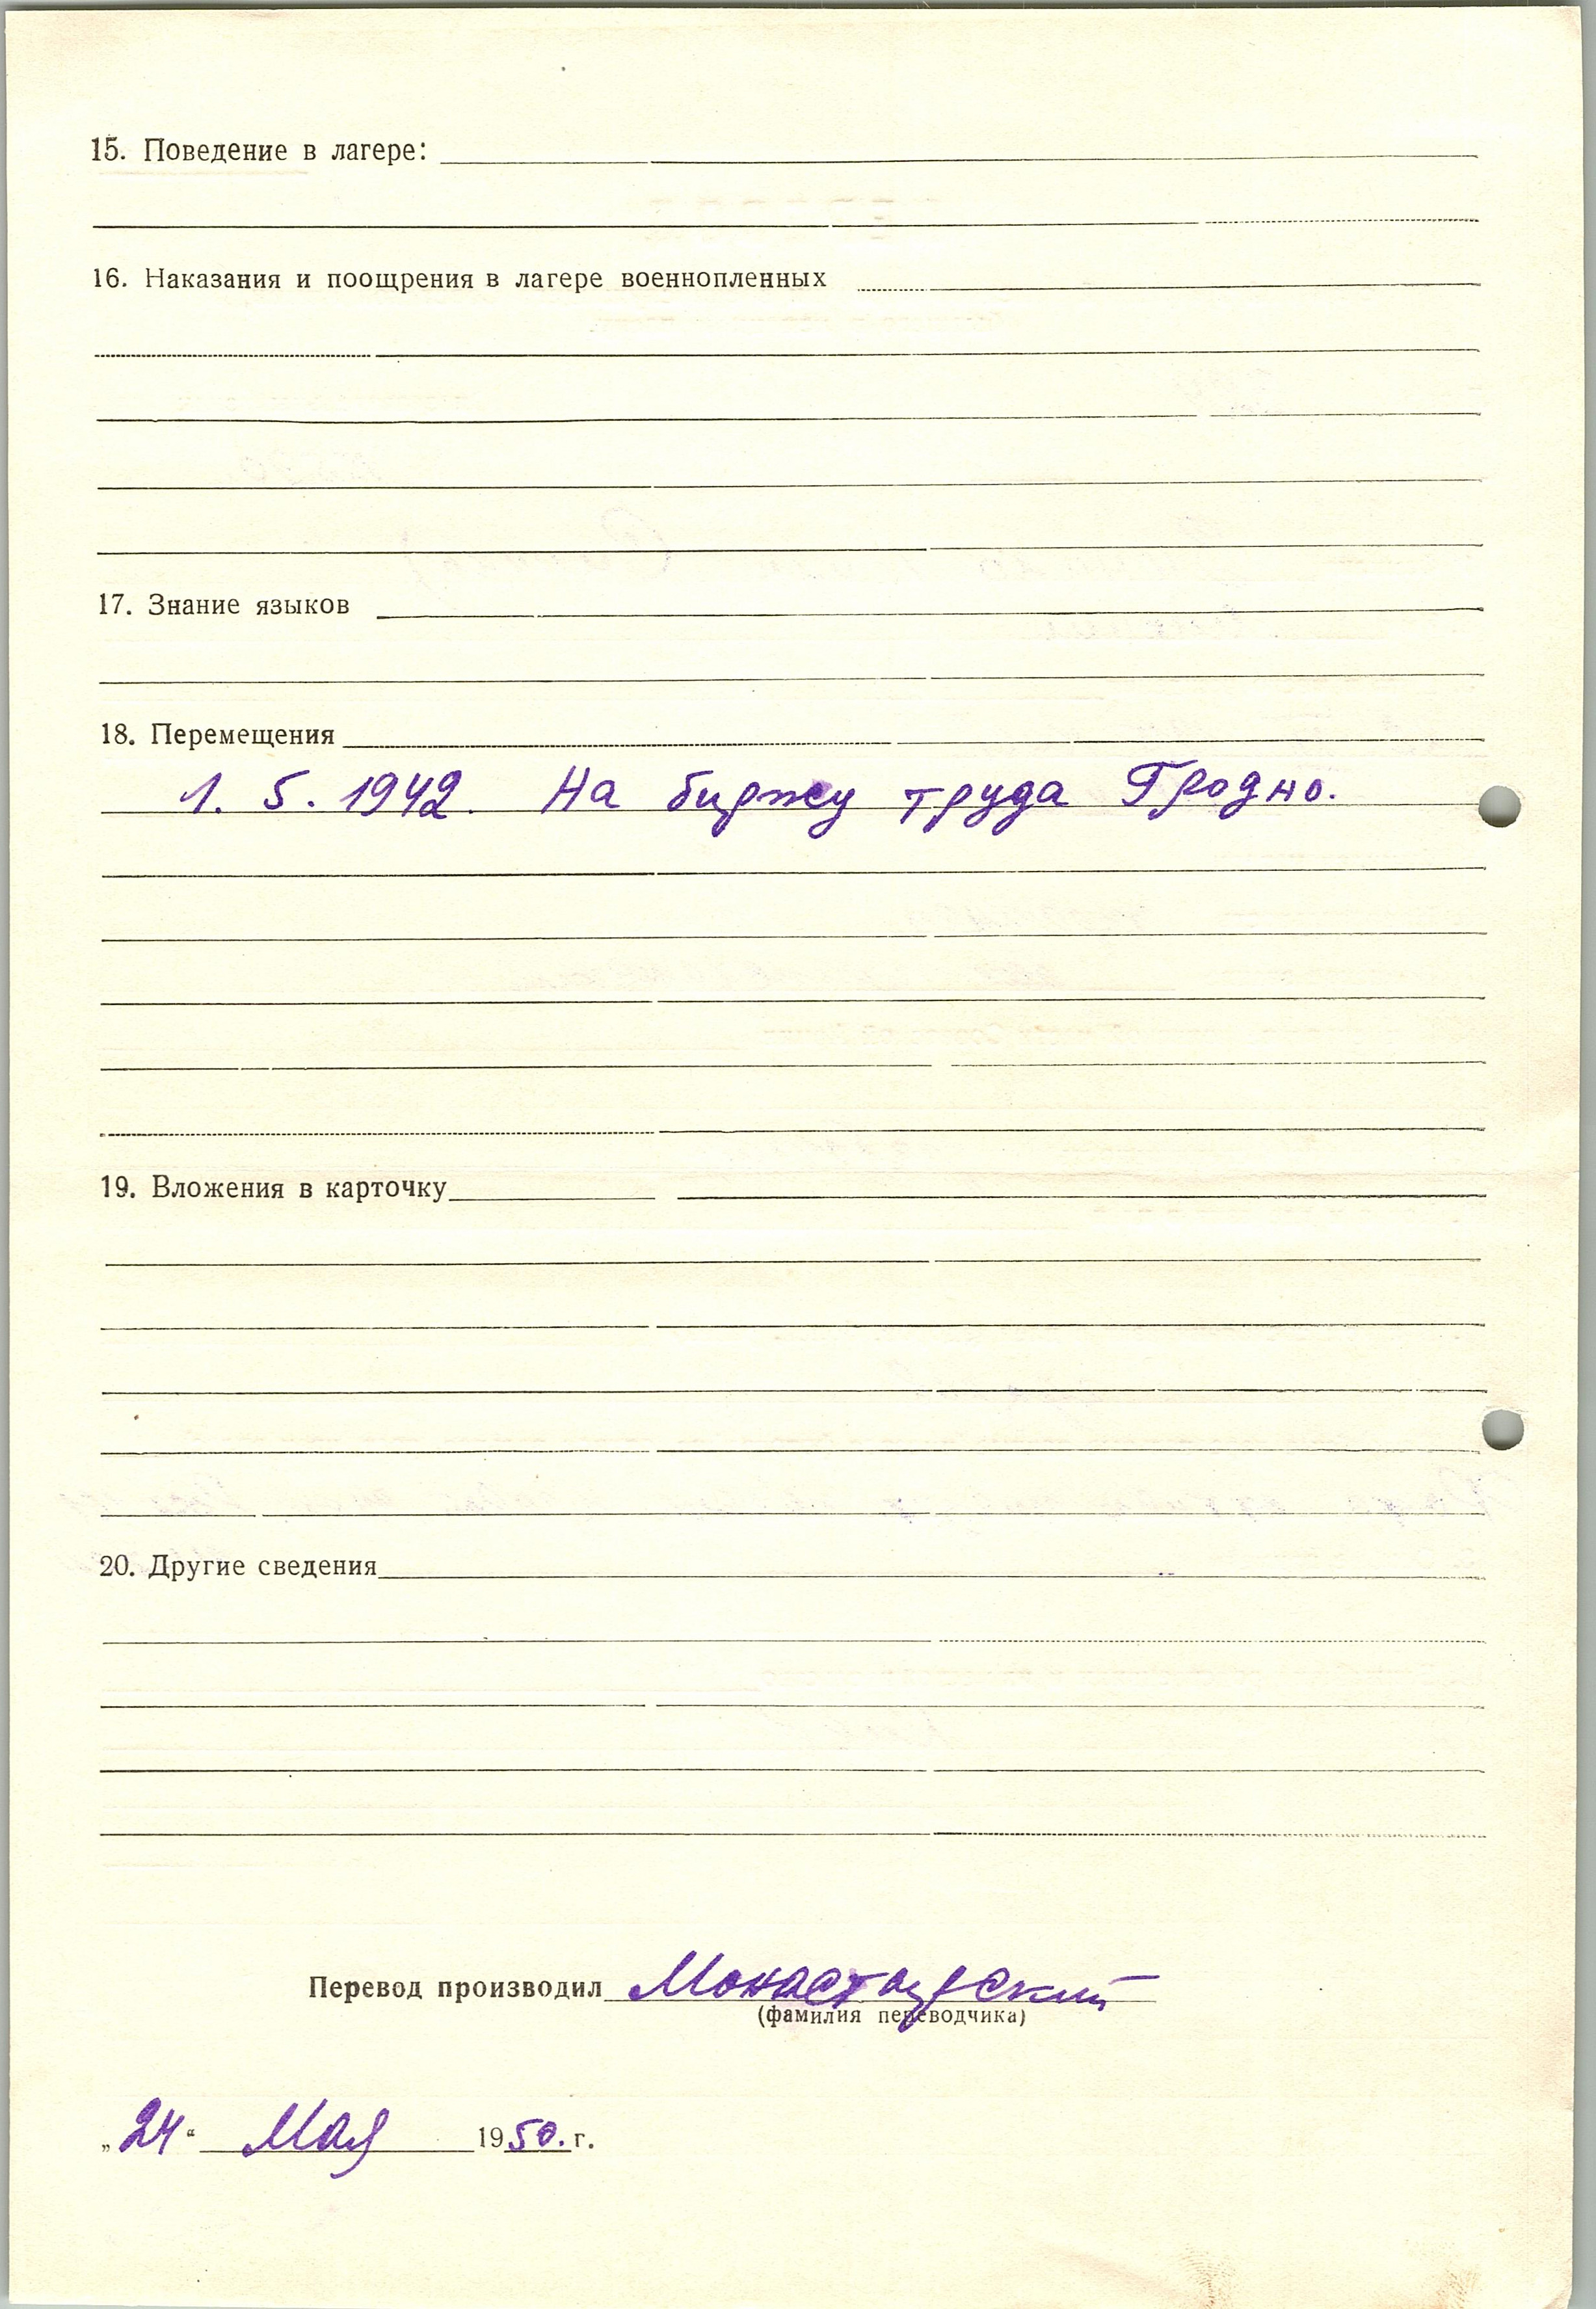 15. Поведение в лагере:
16. Наказания и поощрения в лагере военнопленных
17. Знание языков
18. Перемещения
1. 5. 1942. На биржу труда Гродно.
19. Вложения в карточку
20. Другие сведения
Перевод производил Монастырский
(фамилия переводчика)
„24“ Мая 1950. г.